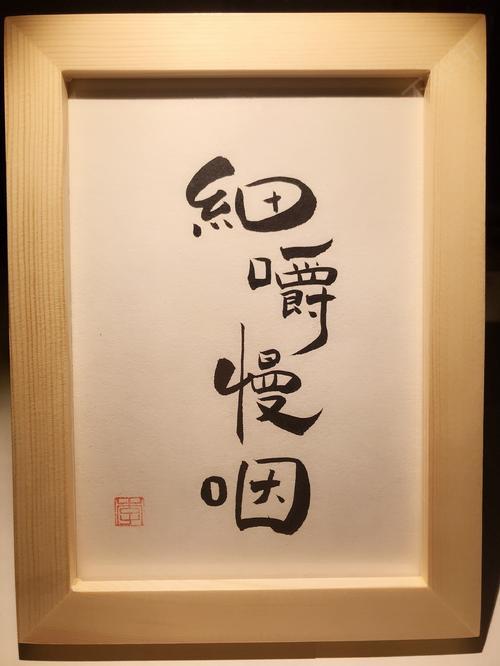 細
嚼
慢
咽